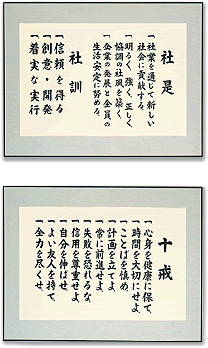 社是
一 社業を通じて新しい
社会に貢献する。
一 明るく、強く、正しく
協調の社風を築く。
一 企業の発展と全員の
生活安定に努める。
社訓
一 信頼を得る
一 創意・開発
一 着実な実行
十戒
一 心身を健康に保て
一 時間を大切にせよ
一 ことばを慎め
一 計画を立てよ
一 常に前進せよ
一 失敗を恐れるな
一 信用を尊重せよ
一 自分を伸ばせ
一 よい友人を持て
一 全力を尽くせ